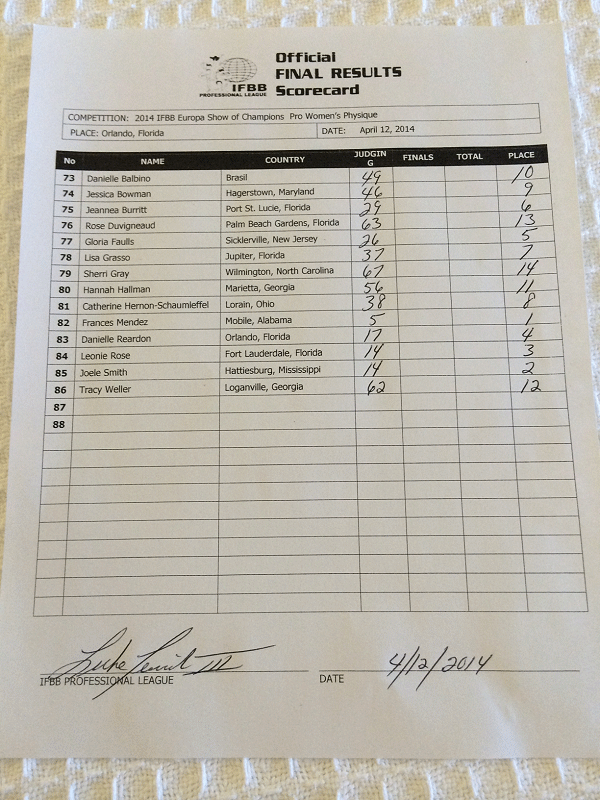 IFBB
PROFESSIONAL LEAGUE
Official
FINAL RESULTS
Scorecard
COMPETITION: 2014 IFBB Europa Show of Champions Pro Women's Physique
PLACE: Orlando, Florida DATE: April 12, 2014
No NAME COUNTRY JUDGING FINALS TOTAL PLACE
73 Danielle Balbino Brasil 49 10
74 Jessica Bowman Hagerstown, Maryland 46 9
75 Jeannea Burritt Port St. Lucie, Florida 29 6
76 Rose Duvigneaud Palm Beach Gardens, Florida 63 13
77 Gloria Faulls Sicklerville, New Jersey 26 5
78 Lisa Grasso Jupiter, Florida 37 7
79 Sherri Gray Wilmington, North Carolina 67 14
80 Hannah Hallman Marietta, Georgia 56 11
81 Catherine Hernon-Schaumleffel Lorain, Ohio 38 8
82 Frances Mendez Mobile, Alabama 5 1
83 Danielle Reardon Orlando, Florida 17 4
84 Leonie Rose Fort Lauderdale, Florida 14 3
85 Joele Smith Hattiesburg, Mississippi 14 2
86 Tracy Weller Loganville, Georgia 62 12
87
88
III 4/12/2014
IFBB PROFESSIONAL LEAGUE DATE